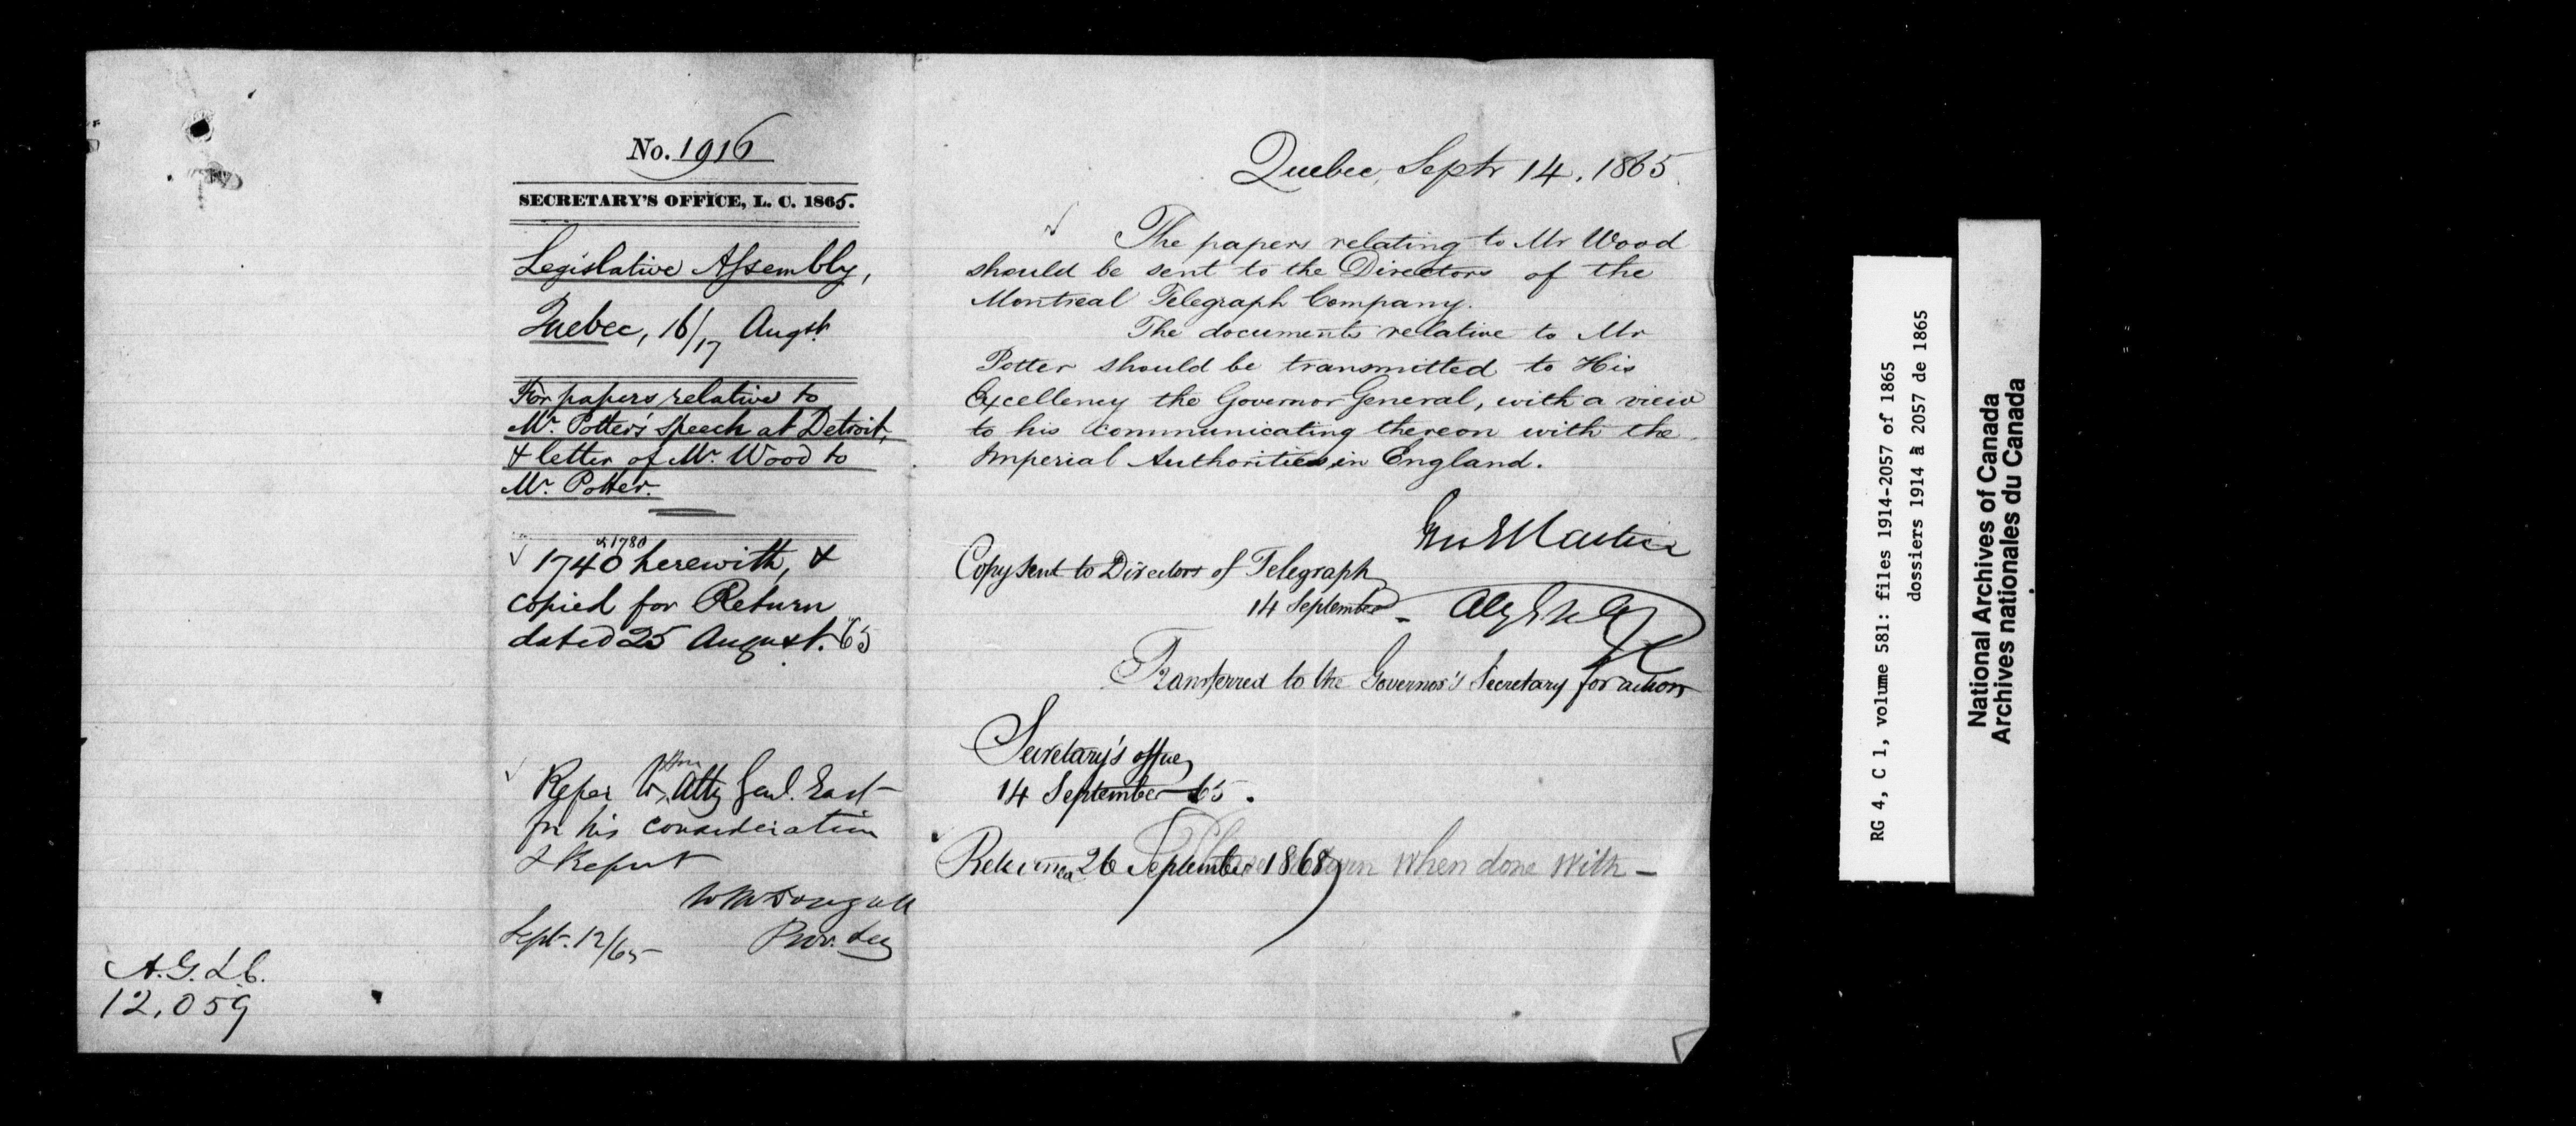 No. 1916
SECRETARY'S OFFICE, L. C. 1865.
Legislative Assembly,
Quebec, 16/17 Augst.
For papers relative to
Mr. Potter's speech at Detroit,
& letter of Mr. Wood to
Mr. Potter.
& 1780
1740 herewith, &
copied for Return
dated 25 August. 65
Refer to Hon Atty Genl. East
for his consideration
& Report
W McDougall
Sept. 12/65 Prov. Secy
A. G. L. C.
12,059
Quebec, Septr 14, 1865.
The papers relating to Mr Wood
should be sent to the Directors of the
Montreal Telegraph Company.
The documents relative to Mr
Potter should be transmitted to His
Excellency the Governor General, with a view
to his communicating thereon with the
Imperial Authorities in England.
Geo E Cartier
Copy sent to Directors of Telegraph
14 September.
Transferred to the Governor's Secretary for action
Secretary's office,
14 September 65.
Returned 26 September 1868
Please return when done with —
RG 4, C 1, volume 581: files 1914-2057 of 1865
dossiers 1914 à 2057 de 1865
National Archives of Canada
Archives nationales du Canada